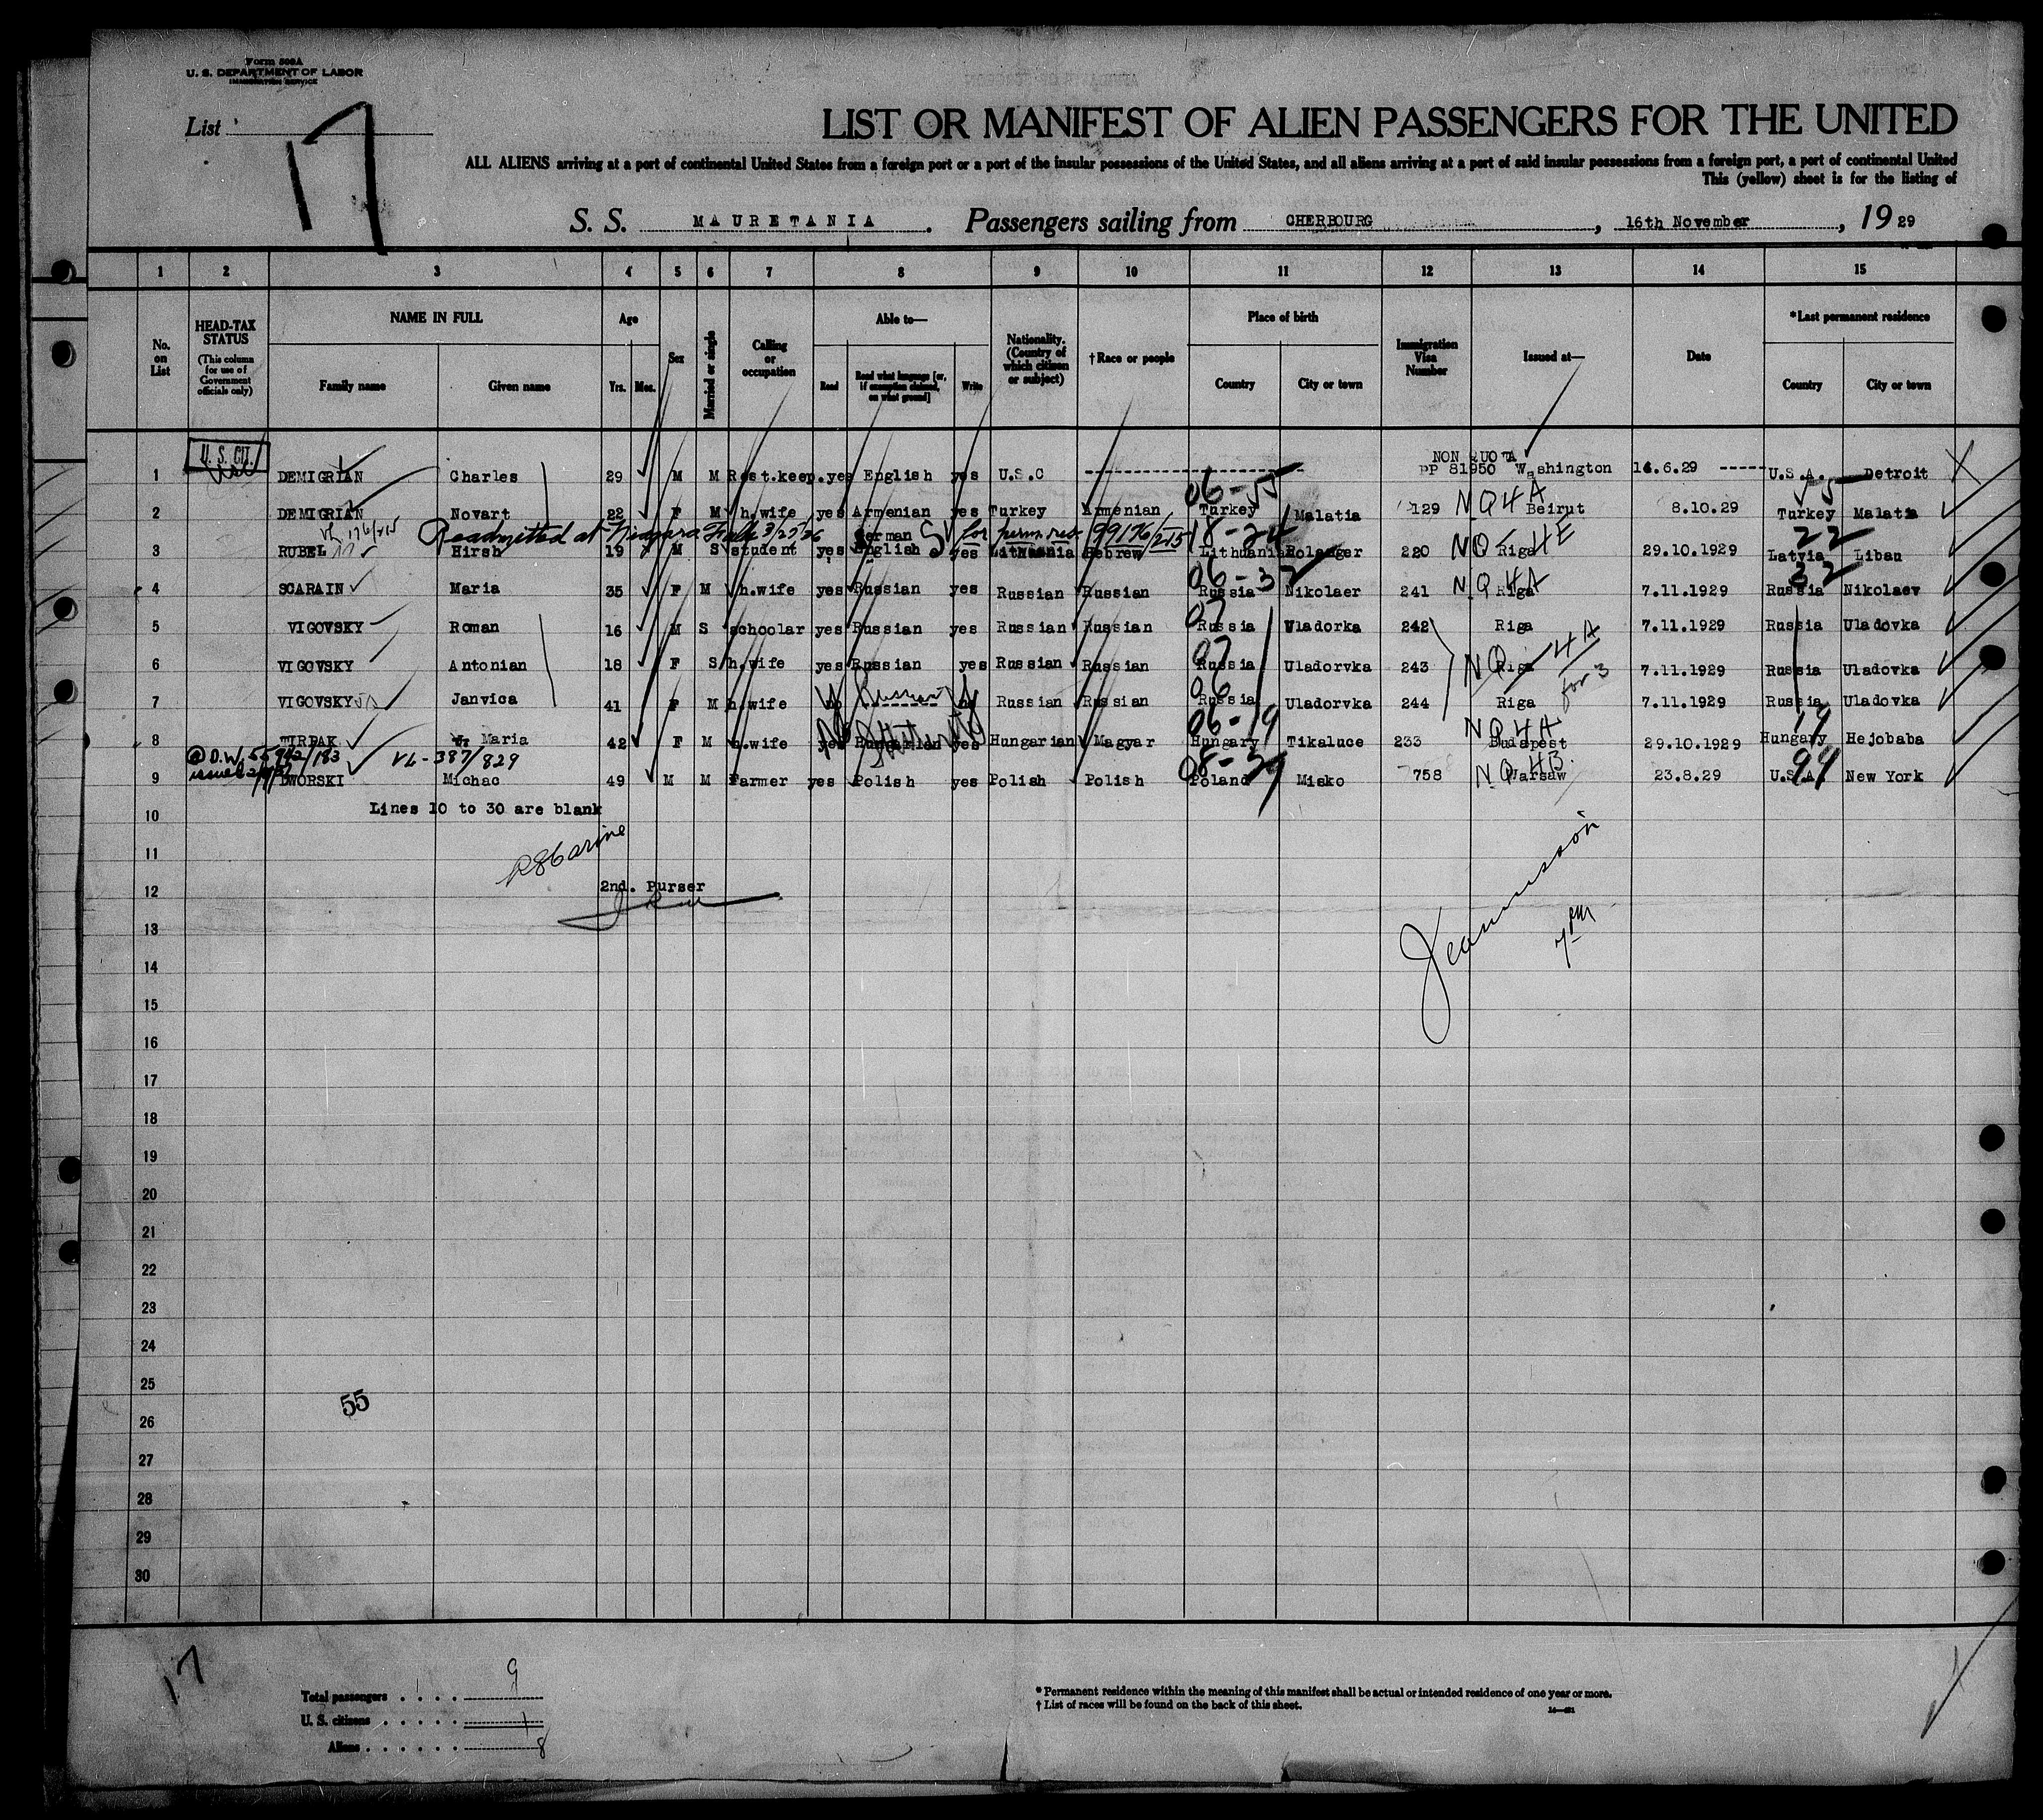 Form 500A
U. S. DEPARTMENT OF LABOR
IMMIGRATION SERVICE
List 17
LIST OR MANIFEST OF ALIEN PASSENGERS FOR THE UNITED
ALL ALIENS arriving at a port of continental United States from a foreign port or a port of the insular possessions of the United States, and all aliens arriving at a port of said insular possessions from a foreign port, a port of continental United
This (yellow) sheet is for the listing of
S. S. MAURETANIA. Passengers sailing from CHERBOURG, 16th November, 1929
1 2 3 4 5 6 7 8 9 10 11 12 13 14 15
No. on List
HEAD-TAX STATUS (This column for use of Government officials only)
NAME IN FULL
Family name
Given name
Age
Yrs. Mos.
Sex
Married or single
Calling or occupation
Able to—
Read
Read what language [or, if exemption claimed, on what ground]
Write
Nationality. (Country of which citizen or subject)
†Race or people
Place of birth
Country
City or town
Immigration Visa Number
Issued at—
Date
*Last permanent residence
Country
City or town
U. S. CIT.
NON QUOTA
1 DEMIGRIAN Charles 29 M M Rest.keep. yes English yes U.S.C PP 81950 Washington 14.6.29 U.S.A. Detroit
06-55 NQ4A 55
2 DEMIGRIAN Novart 22 F M h.wife yes Armenian yes Turkey Armenian Turkey Malatia 129 Beirut 8.10.29 Turkey Malatia
VL 176/215 Readmitted at Niagara Falls 3/27/36 for perm. res. 99176/215 18-24 NQ-4E 22
3 RUBEL Hirsh 19 M S student yes German English yes Lithuania Hebrew Lithuania 220 Riga 29.10.1929 Latvia Liban
06-32 NQ4A 32
4 SCARAIN Maria 35 F M h.wife yes Russian yes Russian Russian Russia Nikolaer 241 Riga 7.11.1929 Russia Nikolaev
07
5 VIGOVSKY Roman 16 M S schoolar yes Russian yes Russian Russian Russia Uladorka 242 Riga 7.11.1929 Russia Uladovka
07 NQ-4A for 3
6 VIGOVSKY Antonian 18 F S h.wife yes Russian yes Russian Russian Russia Uladorvka 243 Riga 7.11.1929 Russia Uladovka
06 Russian
7 VIGOVSKY Janvica 41 F M h.wife no no Russian Russian Russia Uladorvka 244 Riga 7.11.1929 Russia Uladovka
06-19 NQ4A 19
8 TIRPAK Maria 42 F M h.wife yes Hungarian yes Hungarian Magyar Hungary Tikaluce 233 Budapest 29.10.1929 Hungary Hejobaba
VL-387/829 08-39 NQ4B. 99
9 DWORSKI Michac 49 M M Farmer yes Polish yes Polish Polish Poland Misko 758 Warsaw 23.8.29 U.S.A. New York
Lines 10 to 30 are blank
10
11
12 2nd. Purser
13
14
15
16
17
18
19
20
21
22
23
24
25
55
26
27
28
29
30
17
Total passengers . . . . 9
U. S. citizens . . . . . 1
Aliens . . . . . . 8
* Permanent residence within the meaning of this manifest shall be actual or intended residence of one year or more.
† List of races will be found on the back of this sheet.